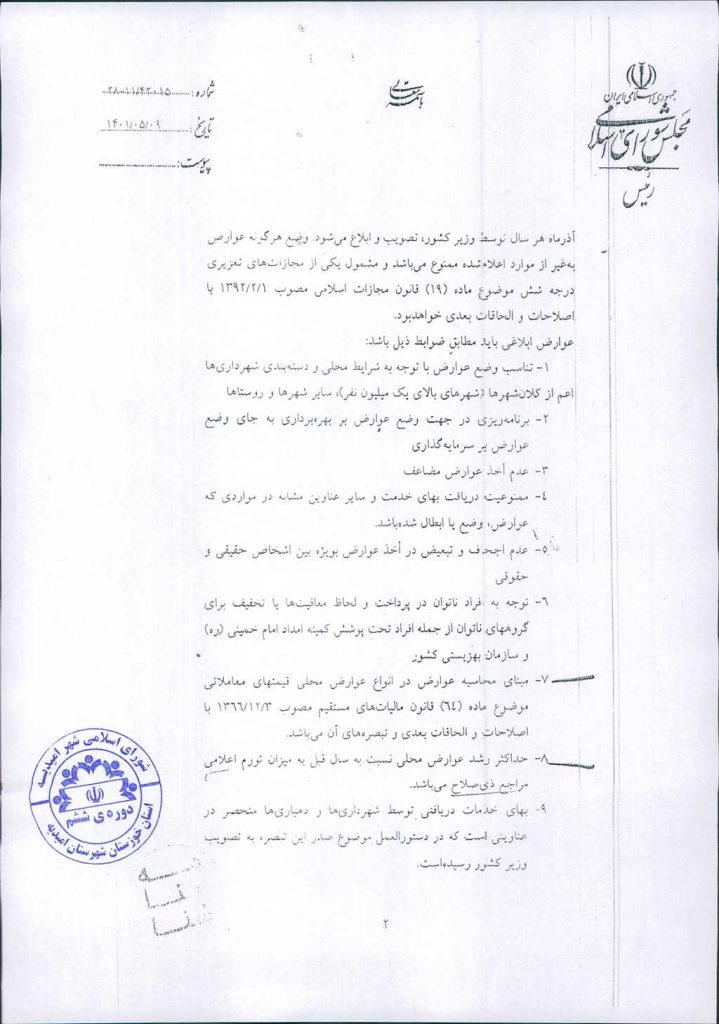 جمهوری اسلامی ایران
مجلس شورای اسلامی
رئیس
باسمه تعالی
شماره:
تاریخ: ۱۴۰۱/۰۵/۰۹
پیوست:
آذرماه هر سال توسط وزیر کشور، تصویب و ابلاغ می‌شود. وضع هرگونه عوارض
به‌غیر از موارد اعلام‌شده ممنوع می‌باشد و مشمول یکی از مجازات‌های تعزیری
درجه شش موضوع ماده (۱۹) قانون مجازات اسلامی مصوب ۱۳۹۲/۲/۱ با
اصلاحات و الحاقات بعدی خواهدبود.
عوارض ابلاغی باید مطابق ضوابط ذیل باشد:
۱- تناسب وضع عوارض با توجه به شرایط محلی و دسته‌بندی شهرداری‌ها
اعم از کلان‌شهرها (شهرهای بالای یک میلیون نفر)، سایر شهرها و روستاها
۲- برنامه‌ریزی در جهت وضع عوارض بر بهره‌برداری به جای وضع
عوارض بر سرمایه‌گذاری
۳- عدم أخذ عوارض مضاعف
۴- ممنوعیت دریافت بهای خدمت و سایر عناوین مشابه در مواردی که
عوارض، وضع یا ابطال شده‌باشد.
۵- عدم اجحف و تبعیض در أخذ عوارض بویژه بین اشخاص حقیقی و
حقوقی
۶- توجه به افراد ناتوان در پرداخت و لحاظ معافیت‌ها یا تخفیف برای
گروههای ناتوان از جمله افراد تحت پوشش کمیته امداد امام خمینی (ره)
و سازمان بهزیستی کشور
۷- مبنای محاسبه عوارض در انواع عوارض محلی قیمتهای معاملاتی
موضوع ماده (۶۴) قانون مالیات‌های مستقیم مصوب ۱۳۶۶/۱۲/۳ با
اصلاحات و الحاقات بعدی و تبصره‌های آن می‌باشد.
۸- حداکثر رشد عوارض محلی نسبت به سال قبل به میزان تورم اعلامی
مراجع ذی‌صلاح می‌باشد.
۹- بهای خدمات دریافتی توسط شهرداری‌ها و دهیاری‌ها منحصر در
عناوینی است که در دستورالعمل موضوع صدر این تبصره به تصویب
وزیر کشور رسیده‌است.
شورای اسلامی شهر امیدیه
دوره ی ششم
استان خوزستان شهرستان امیدیه
۲